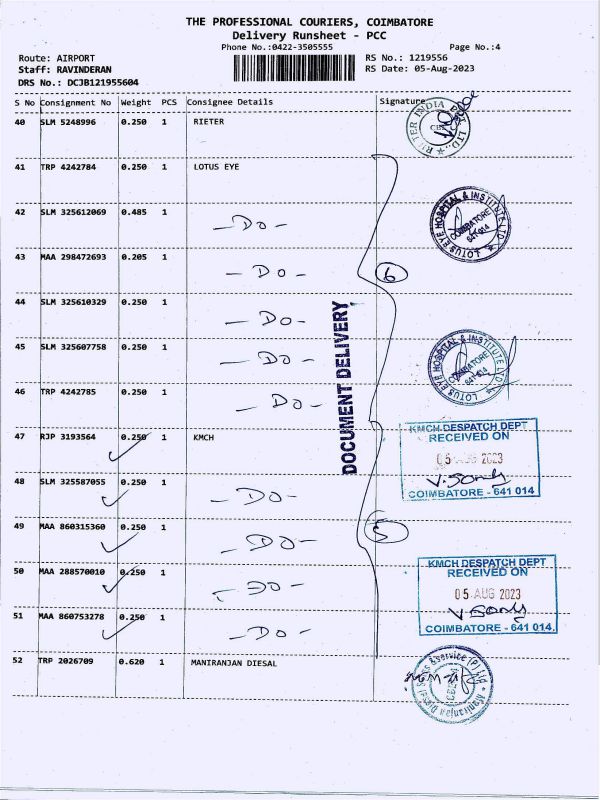 THE PROFESSIONAL COURIERS, COIMBATORE
Delivery Runsheet - PCC
Phone No.:0422-3505555 Page No.:4
Route: AIRPORT RS No.: 1219556
Staff: RAVINDERAN RS Date: 05-Aug-2023
DRS No.: DCJB121955604
S No Consignment No Weight PCS Consignee Details Signature
40 SLM 5248996 0.250 1 RIETER
RIETER INDIA PVT LTD.
41 TRP 4242784 0.250 1 LOTUS EYE
42 SLM 325612069 0.485 1 - Do -
LOTUS EYE HOSPITAL & INSTITUTE LTD
COIMBATORE
641 014
43 MAA 298472693 0.205 1 - Do -
6
44 SLM 325610329 0.250 1 - Do -
DOCUMENT DELIVERY
45 SLM 325607758 0.250 1 - Do -
LOTUS EYE HOSPITAL & INSTITUTE LTD
COIMBATORE
641 014
46 TRP 4242785 0.250 1 - Do -
47 RJP 3193564 0.250 1 KMCH
KMCH DESPATCH DEPT
RECEIVED ON
05 AUG 2023
COIMBATORE - 641 014
48 SLM 325587055 0.250 1 - Do -
49 MAA 860315360 0.250 1 - Do -
5
50 MAA 288570010 0.250 1 - Do -
KMCH DESPATCH DEPT
RECEIVED ON
05 AUG 2023
COIMBATORE - 641 014
51 MAA 860753278 0.250 1 - Do -
52 TRP 2026709 0.620 1 MANIRANJAN DIESAL
Maniranjan Diesel Sales & Service (P) Ltd